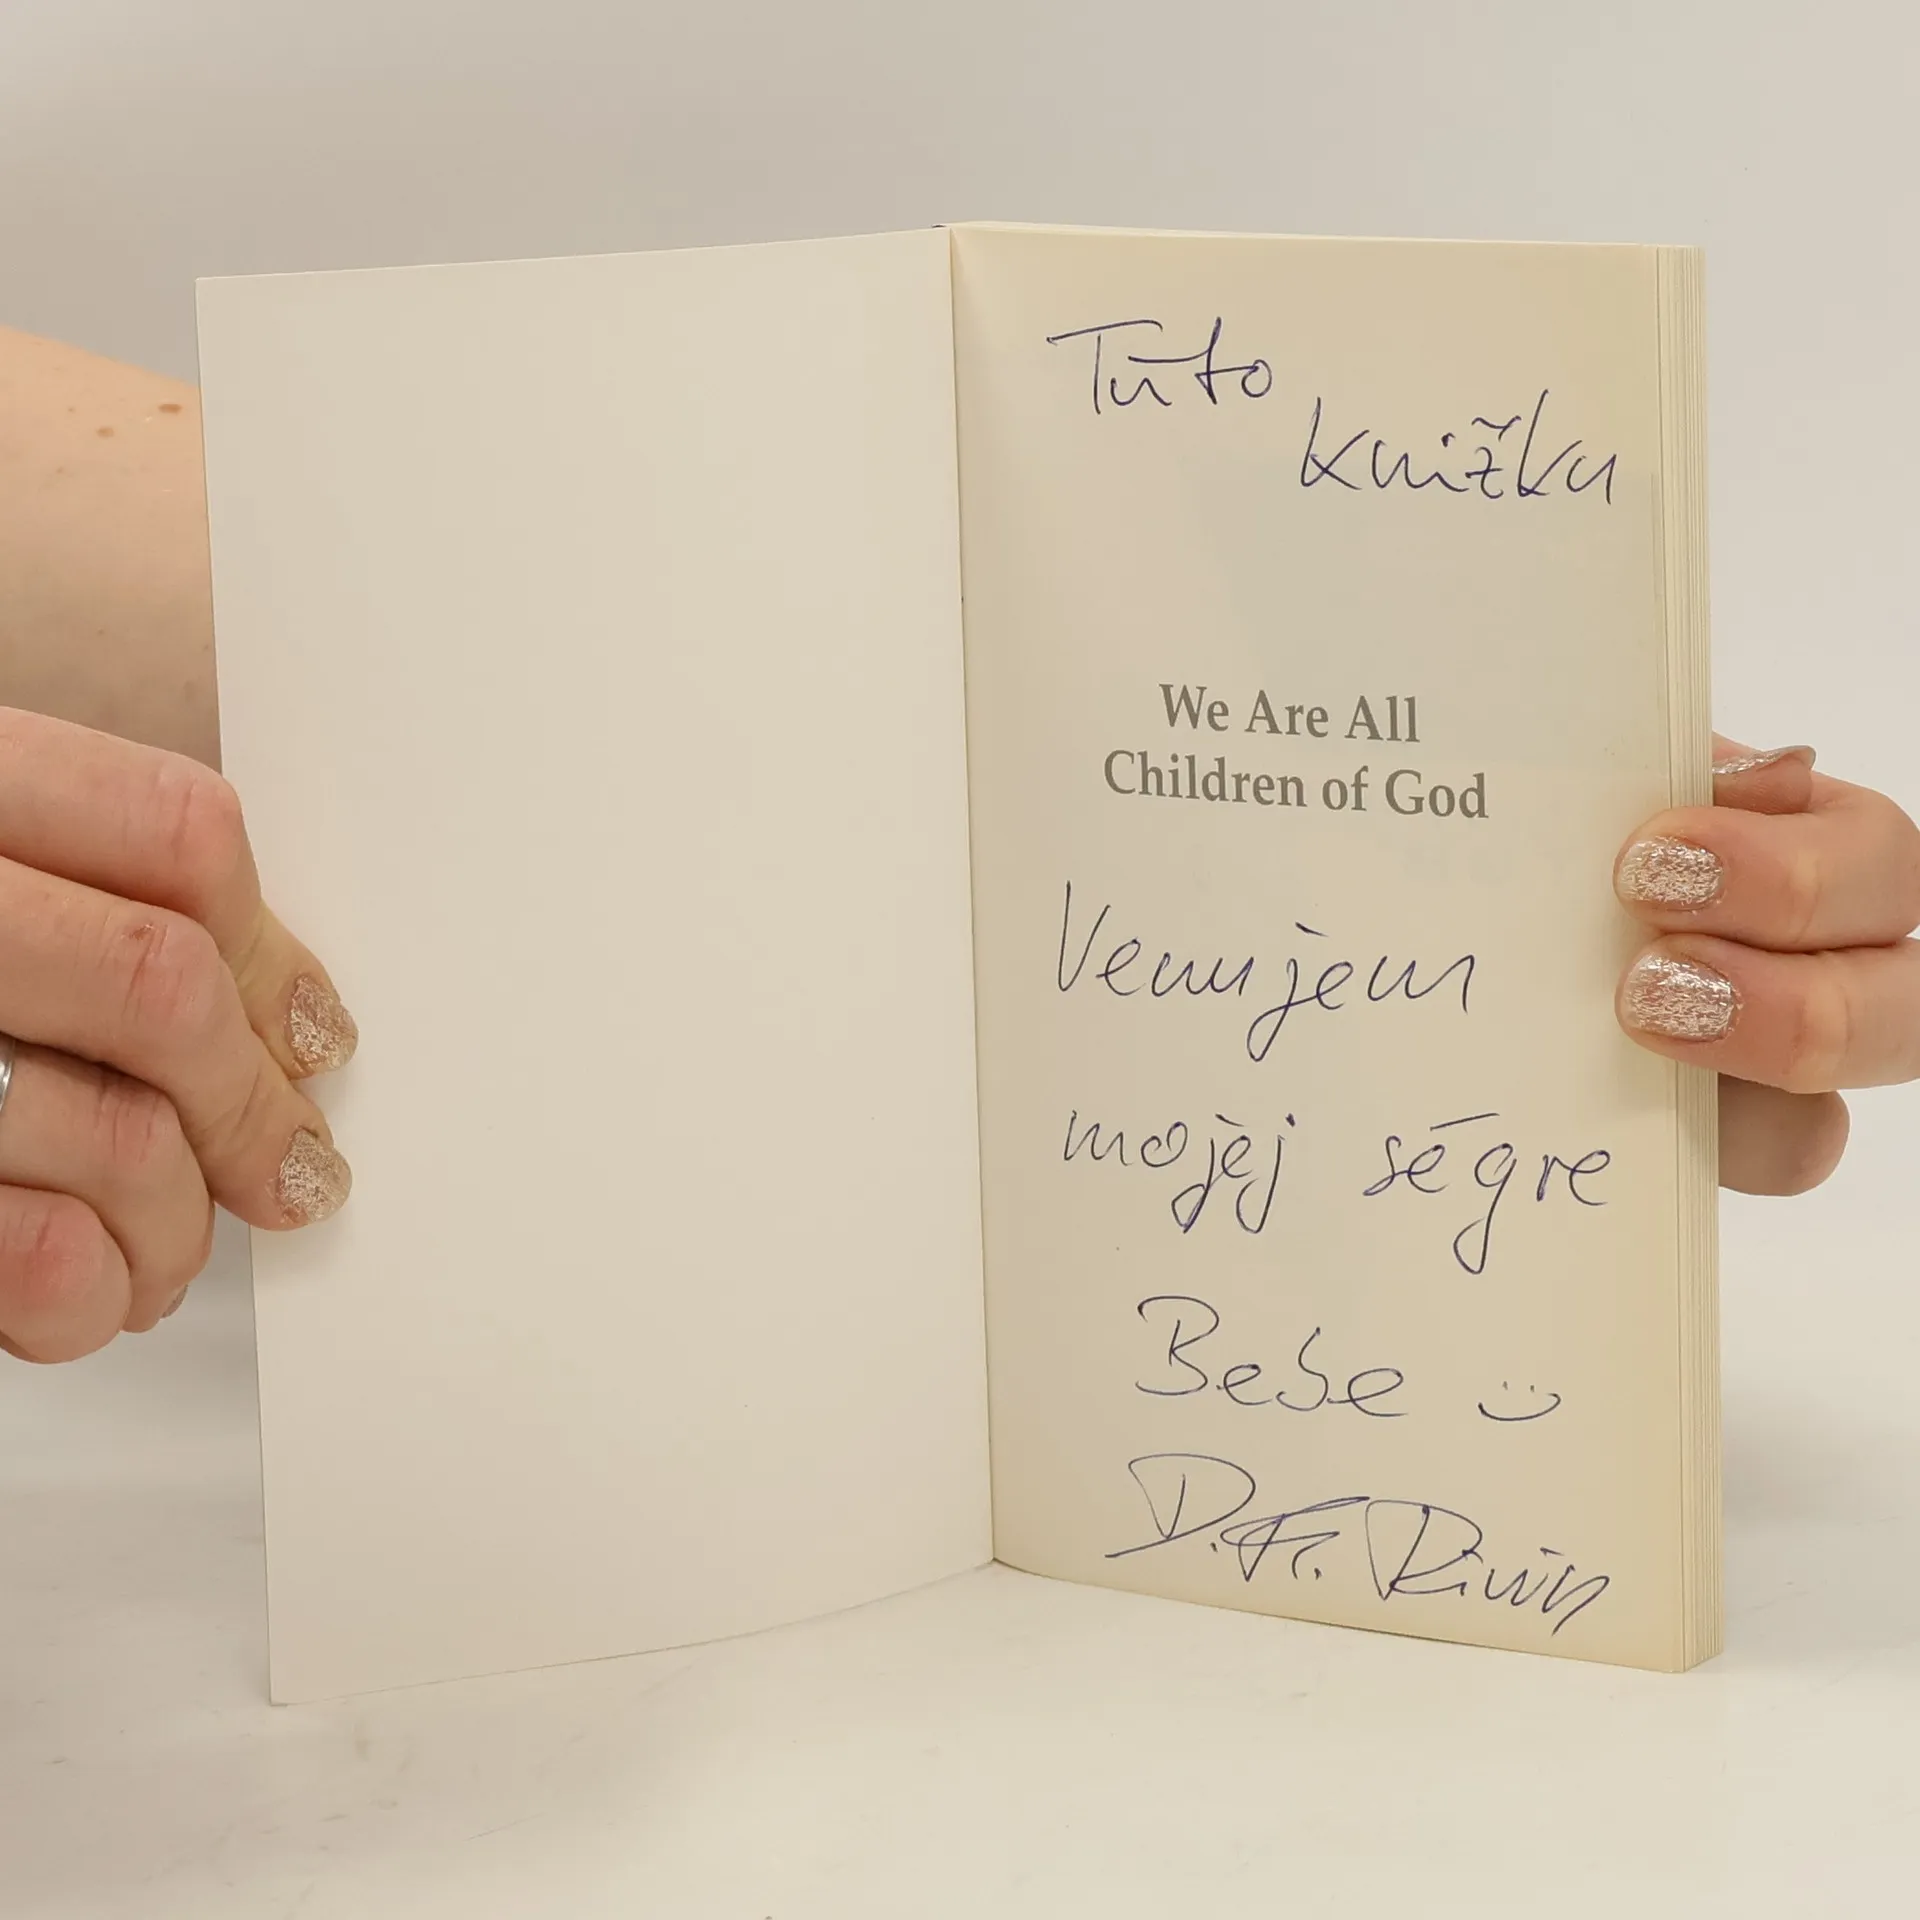 Túto
knižku
We Are All
Children of God
Venujem
mojej ségre
Bebe :)
D. Fr.